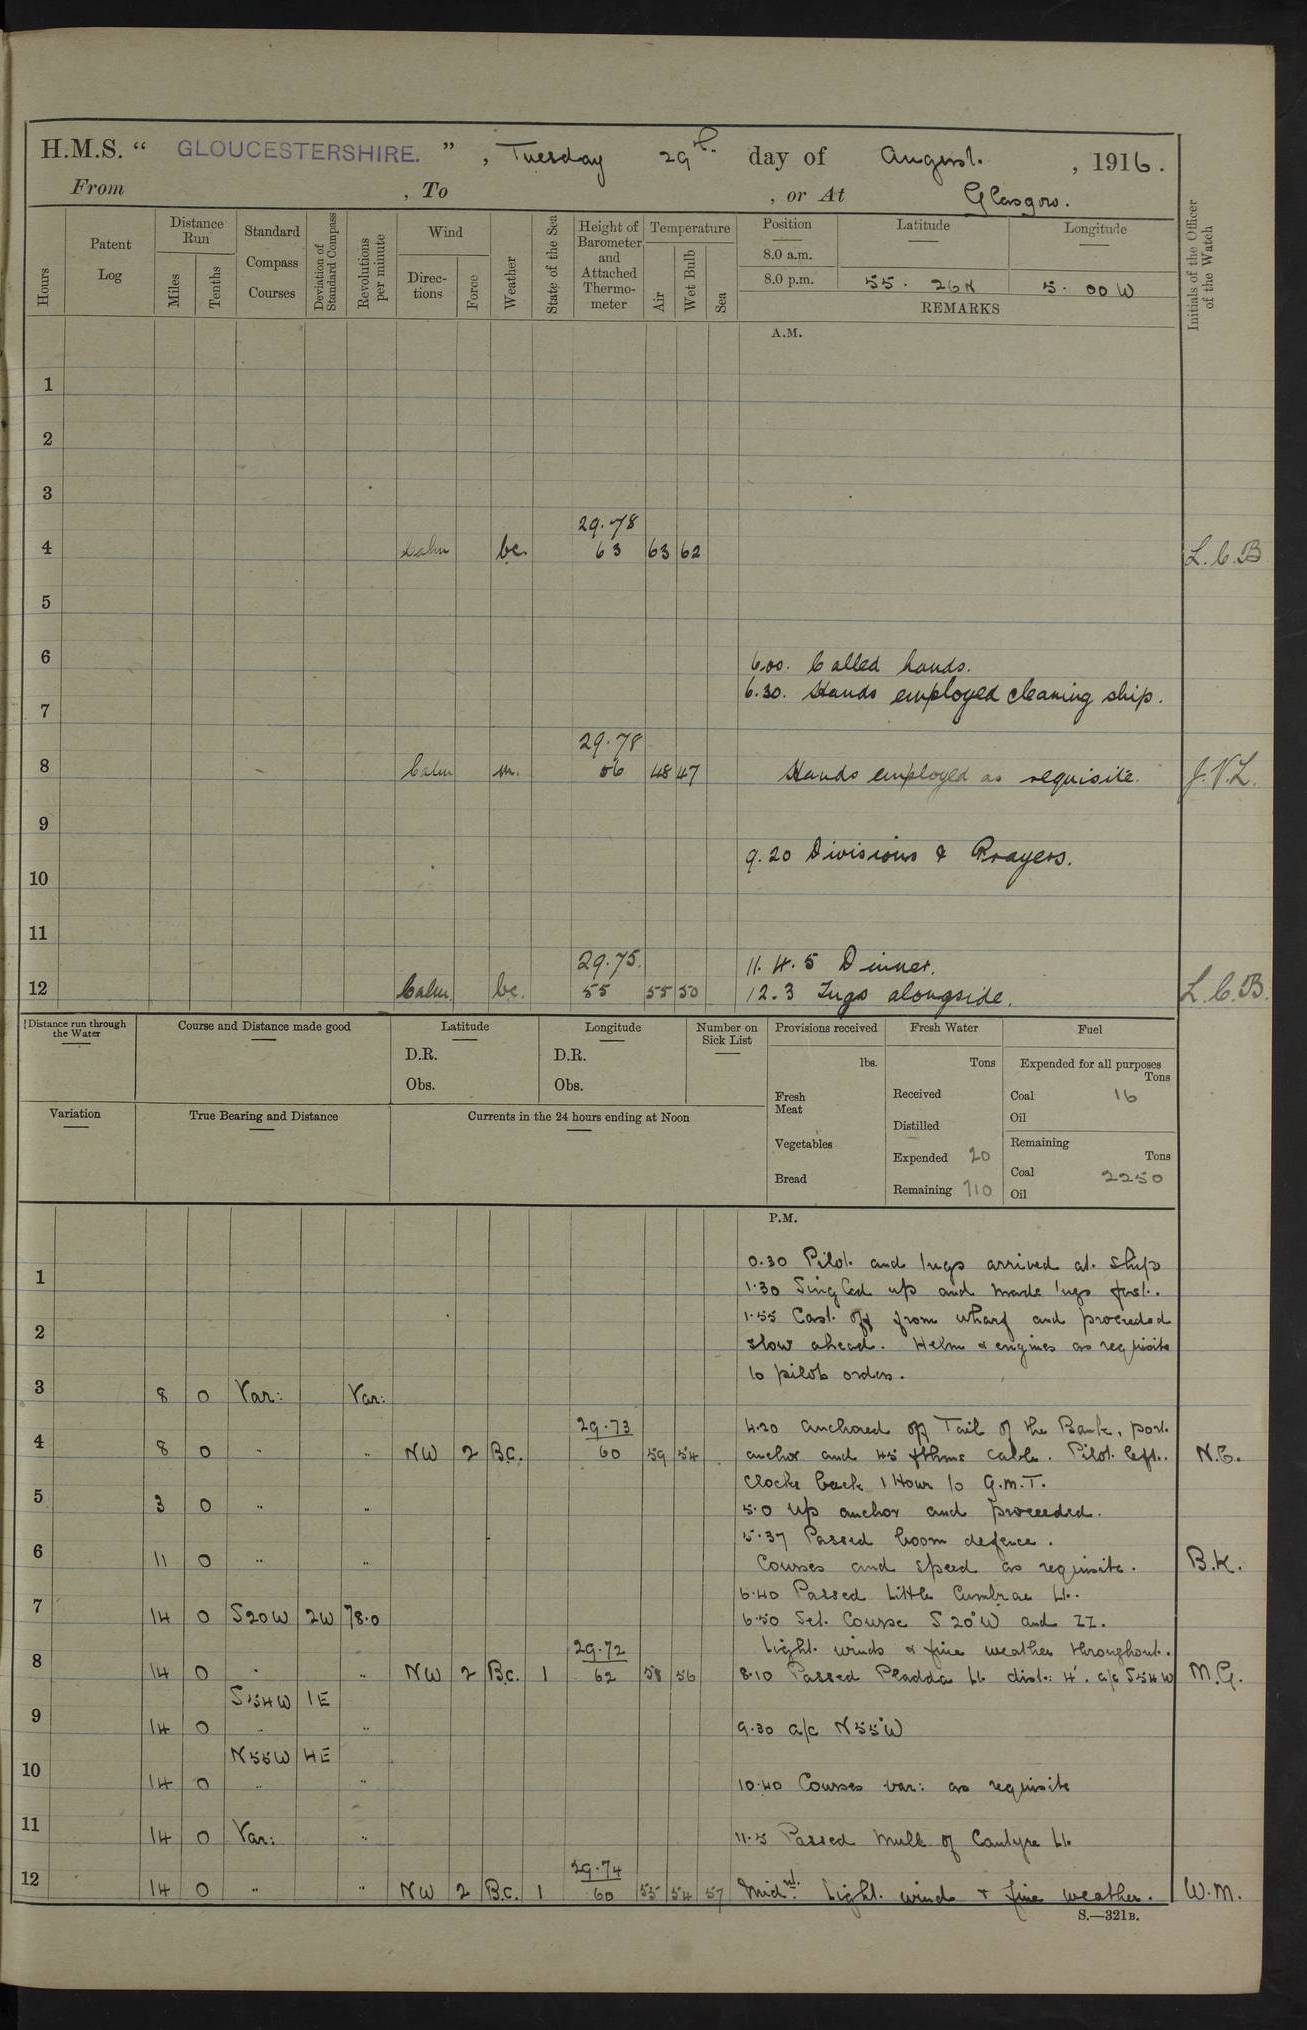 H.M.S. " GLOUCESTERSHIRE. " , Tuesday 29th day of August. , 1916.
From , To , or At Glasgow.
Hours
Patent Log
Distance Run
Miles
Tenths
Standard Compass Courses
Deviation of Standard Compass
Revolutions per minute
Wind
Directions
Force
Weather
State of the Sea
Height of Barometer and Attached Thermometer
Temperature
Air
Wet Bulb
Sea
Position
8.0 a.m.
8.0 p.m.
Latitude
55. 26 N
Longitude
5. 00 W
REMARKS
Initials of the Officer of the Watch
A.M.
1
2
3
29.78
4 Calm bc. 63 63 62 L.C.B
5
6 6.00. Called hands.
6.30. Hands employed cleaning ship.
7
29.78
8 Calm m. 56 48 47 Hands employed as requisite. J.V.L.
9
9.20 Divisions & Prayers.
10
11
29.75. 11.45 Dinner.
12 Calm. bc. 55 55 50 12.3 Tugs alongside. L.C.B.
Distance run through the Water
Course and Distance made good
Latitude
D.R.
Obs.
Longitude
D.R.
Obs.
Number on Sick List
Provisions received
lbs.
Fresh Meat
Vegetables
Bread
Fresh Water
Tons
Received
Distilled
Expended 20
Remaining 710
Fuel
Expended for all purposes
Tons
Coal 16
Oil
Remaining
Tons
Coal 2250
Oil
Variation
True Bearing and Distance
Currents in the 24 hours ending at Noon
P.M.
0.30 Pilot and tugs arrived at ship
1 1.30 Singled up and made tugs fast.
1.55 Cast off from wharf and proceeded
2 slow ahead. Helm & engines as requisite
to pilots orders.
3 8 0 Var: Var:
29.73 4.20 anchored off Tail of the Bank, port
4 8 0 " " NW 2 B.C. 60 59 54 anchor and 45 fthms cable. Pilot left. N.C.
Clocks back 1 Hour to G.M.T.
5 3 0 " " 5.0 Up anchor and proceeded.
5.37 Passed boom defence.
6 11 0 " " Courses and speed as requisite. B.K.
6.40 Passed Little Cumbrae Lt.
7 14 0 S20W 2W 78.0 6.50 Set Course S20°W and ZZ.
29.72 Light winds & fine weather throughout.
8 14 0 " " NW 2 B.C. 1 62 58 56 8.10 Passed Pladda Lt dist: 4'. a/c S54W M.G.
S54W 1E
9 14 0 " " 9.30 a/c N55°W
N55W 4E
10 14 0 " " 10.40 Courses var: as requisite
11 14 0 Var: " 11.5 Passed Mull of Cantyre Lt.
29.74
12 14 0 " " NW 2 B.C. 1 60 55 54 57 Midnt. Light wind & fine weather. W.M.
S.—321B.